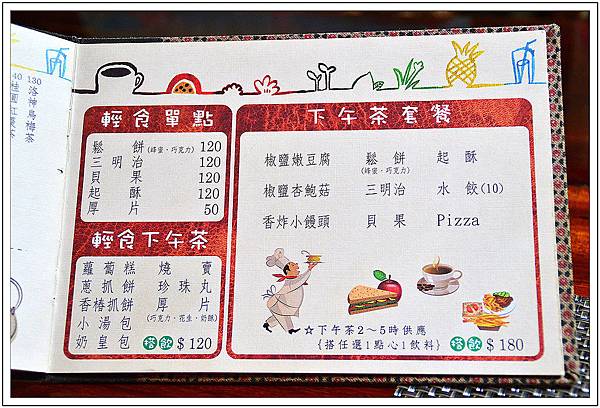 40 130
桂圓紅棗茶
洛神烏梅茶
輕食單點
鬆餅(蜂蜜、巧克力) 120
三明治 120
貝果 120
起酥 120
厚片 50
輕食下午茶
蘿蔔糕 燒賣
蔥抓餅 珍珠丸
香椿抓餅 厚片
小湯包 (巧克力、花生、奶酥)
奶皇包 搭飲 $120
下午茶套餐
椒鹽嫩豆腐 鬆餅 起酥
(蜂蜜、巧克力)
椒鹽杏鮑菇 三明治 水餃(10)
香炸小饅頭 貝果 Pizza
☆下午茶2～5時供應
{搭任選1點心1飲料} 搭飲 $180